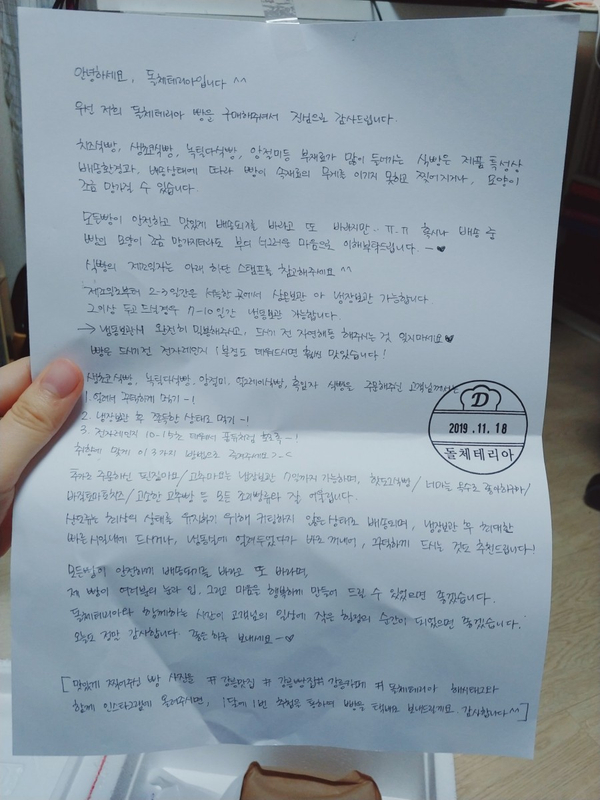 안녕하세요, 돌체테리아입니다 ^^
우선 저희 돌체테리아 빵을 구매해주셔서 진심으로 감사드립니다.
치즈식빵, 생초코식빵, 녹턱다식빵, 앙절미등 부재료가 많이 들어가는 식빵은 제품 특성상
배송환경과, 배송상태에 따라 빵이 속재료의 무게를 이기지 못하고 찢어지거나, 모양이
조금 망가질 수 있습니다.
모든빵이 안전하고 맛있게 배송되기를 바라고 또 바라지만.. ㅠ.ㅠ 혹시나 배송 중
빵의 모양이 조금 망가지더라도 부디 너그러운 마음으로 이해부탁드립니다. ~♥
식빵의 제조일자는 아래 하단 스탬프를 참고해주세요 ^^
제조일로부터 2-3일간은 서늘한 곳에서 상온보관 아 냉장보관 가능합니다.
그이상 두고 드실경우 7-10일간 냉동보관 가능합니다.
→ 냉동보관시 완전히 밀봉해주시고, 드시기 전 자연해동 해주시는 것 잊지마세요♥
빵은 드시기전 전자레인지 1분정도 데워드시면 훨씬 맛있습니다!
생초코식빵, 녹턱다식빵, 앙절미, 얼그레이식빵, 흑임자 식빵을 주문해주신 고객님께서는
1. 얼려서 꾸덕하게 먹기 -!
2. 냉장보관 후 쫀득한 상태로 먹기 -!
3. 전자레인지 10-15초 데워서 퐁듀처럼 후루룩 -!
취향에 맞게 이 3가지 방법으로 즐겨주세요
2019. 11. 18
돌체테리아
추가로 주문하신 고추마요는 냉장보관 가능하며,
모든 조리빵류와 잘 어울립니다.
상온에서는 최상의 상태를 유지하기 위해 커팅하지 않은 상태로 배송되며, 냉장보관 후 최대한
빠른 시일내에 드시거나, 냉동실에 얼려두었다가 바로 꺼내어, 꾸덕하게 드시는 것도 추천드립니다!
모든빵이 안전하게 배송되기를 바라고 또 바라며,
제 빵이 여러분의 눈과 입, 그리고 마음을 행복하게 만들어 드릴 수 있었으면 좋겠습니다.
돌체테리아와 함께하는 시간이 고객님의 일상에 작은 힐링의 순간이 되었으면 좋겠습니다.
오늘도 정말 감사합니다. 좋은 하루 보내세요 ~♥
[ 맛있게 찍어주신 빵 사진을 #강릉맛집 #강릉빵집 #강릉카페 #돌체테리아 해시태그와
함께 인스타그램에 올려주시면, 1달에 1번 추첨을 통하여 빵을 택배로 보내드릴게요. 감사합니다^^ ]